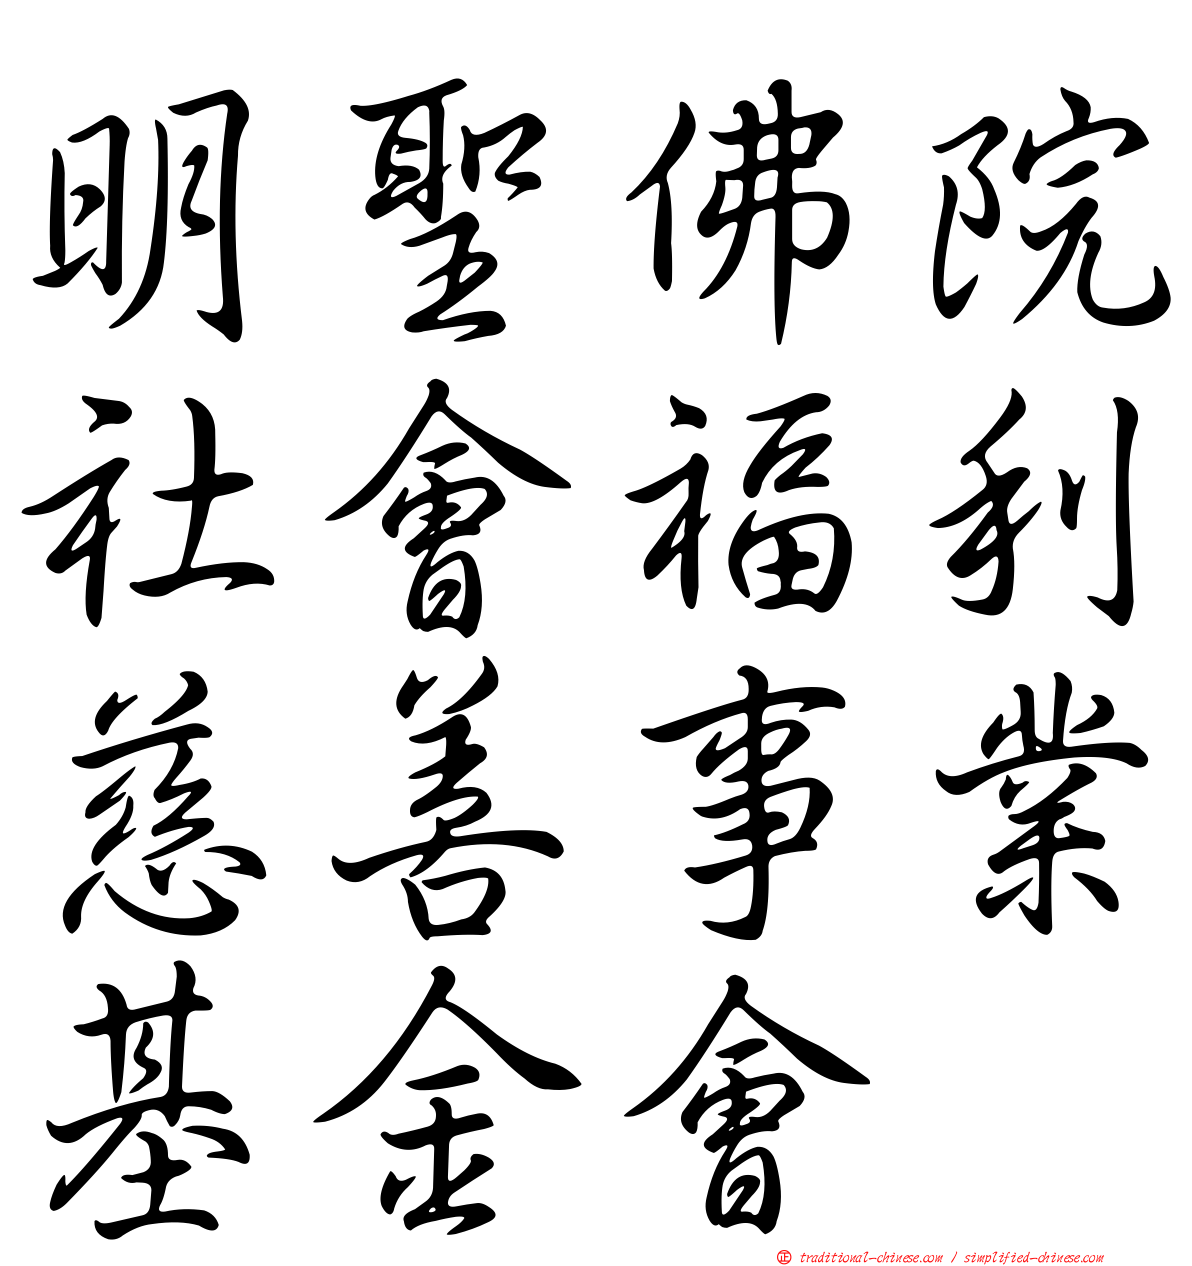 明聖佛院
社會福利
慈善事業
基金會
㊣ traditional-chinese.com / simplified-chinese.com